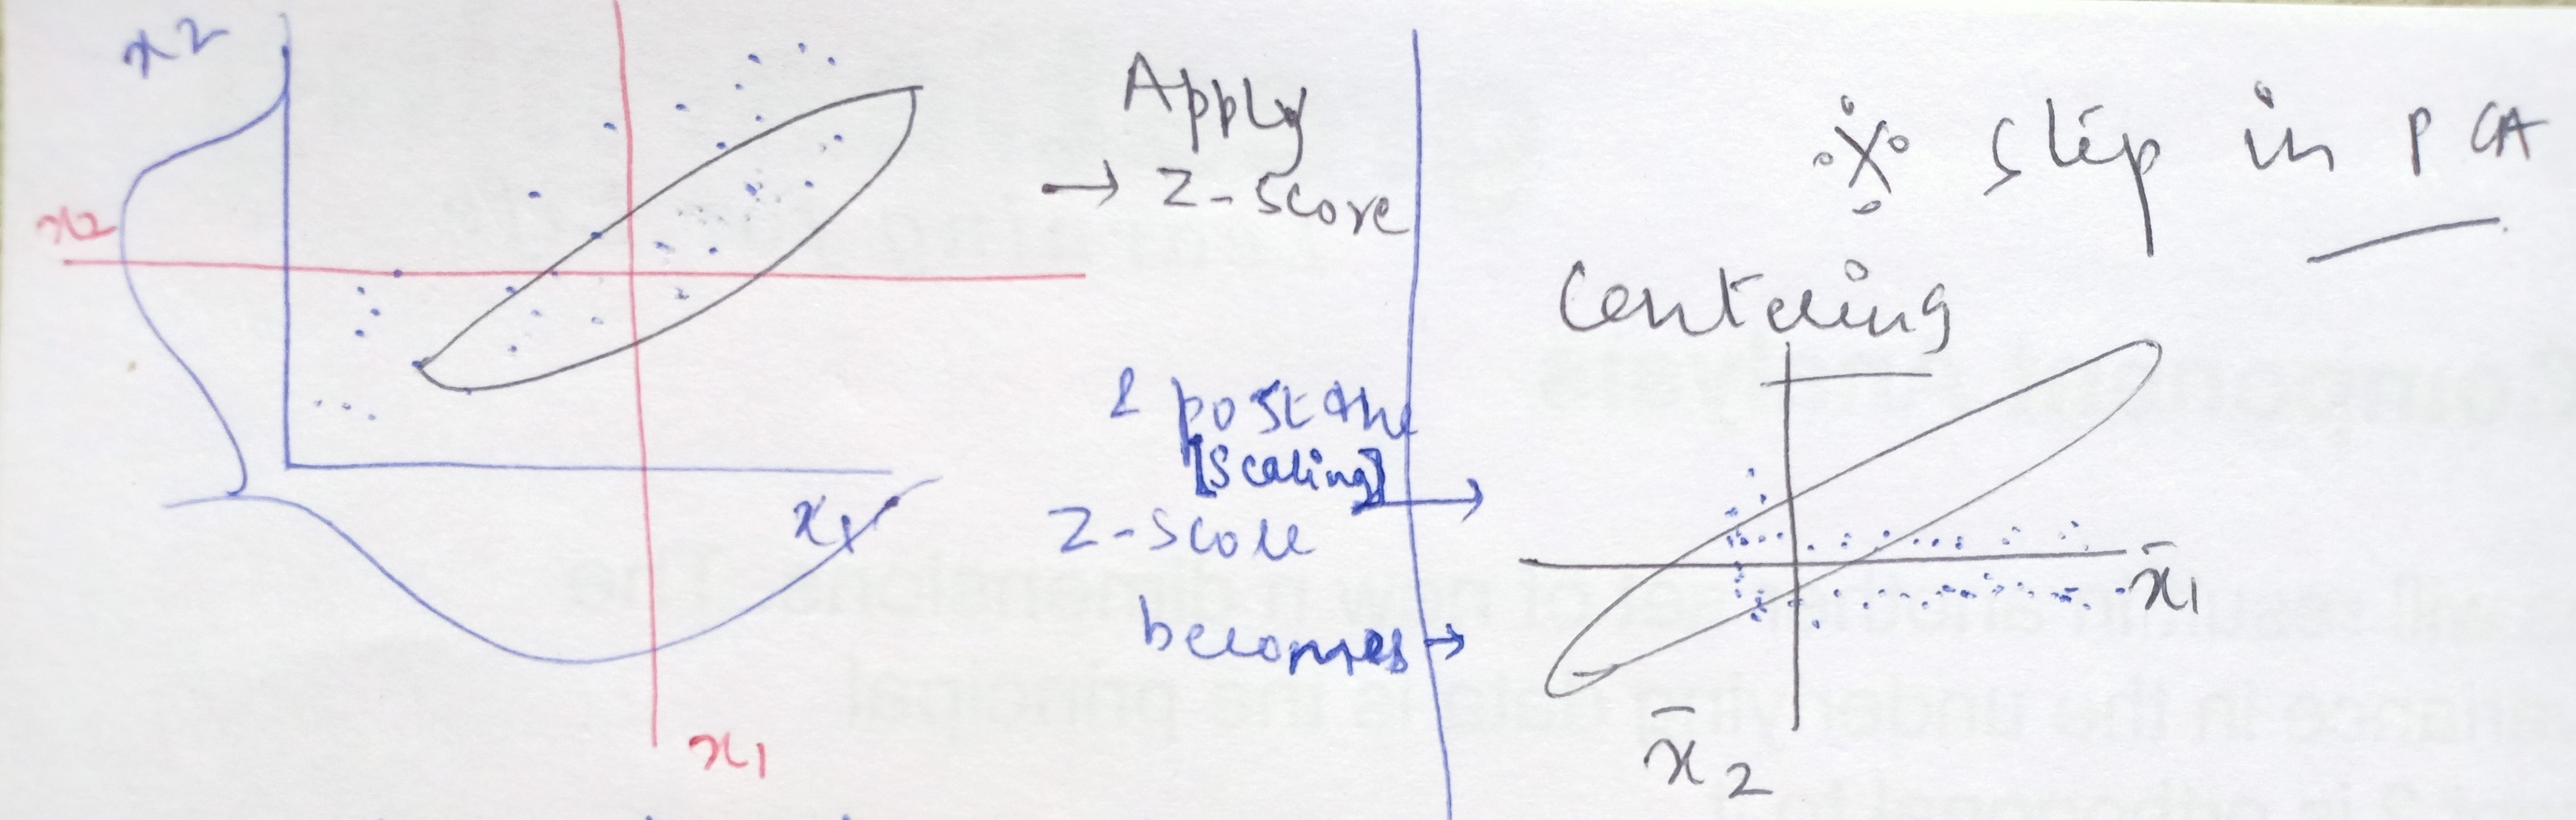 x2
x2
x1
x1
Apply
→ Z-Score
& post the
[Scaling]
Z-Score
becomes →
※ Step in PCA
Centering
x̄1
x̄2